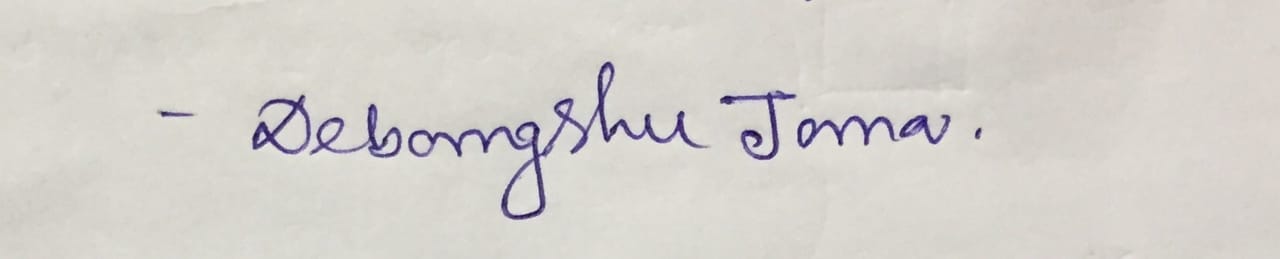 - Debangshu Jana.